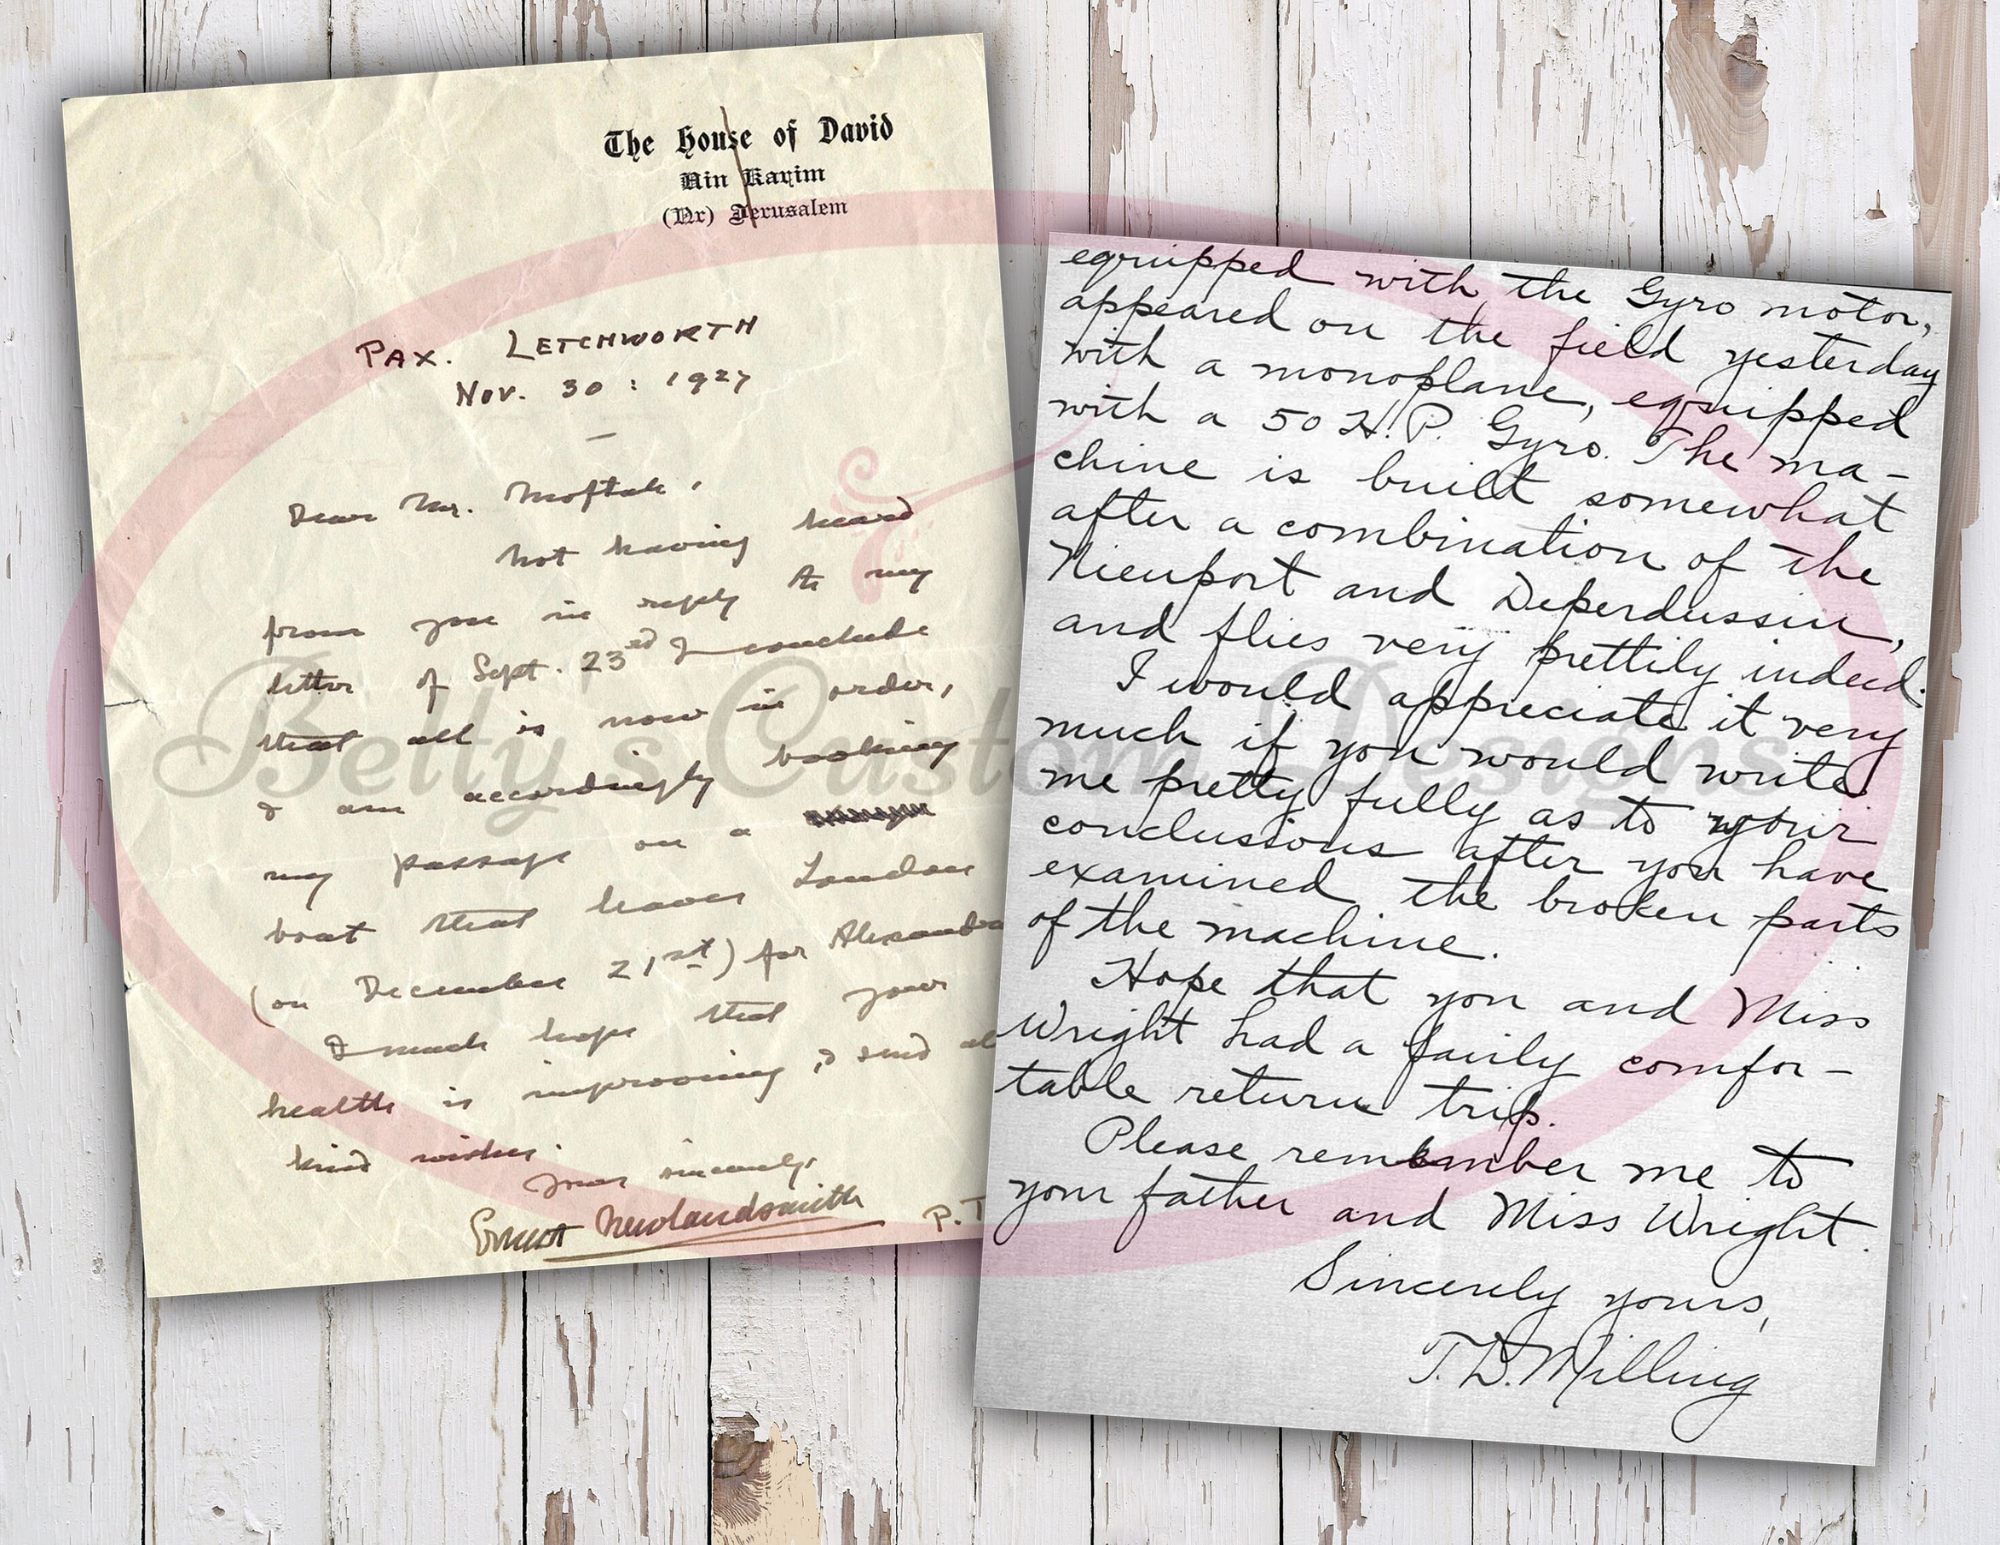 The House of David
Ain Karim
(Nr) Jerusalem
PAX. LETCHWORTH
Nov. 30 : 1927
Dear Mr. Moftah,
not having heard
from you in reply to my
letter of Sept. 23rd I conclude
that all is now in order,
& am accordingly booking
my passage on a
boat that leaves London
(on December 21st) for Alexandr
I much hope that your
health is improving, & send al
kind wishes.
Yours sincerely,
Ernest Newlandsmith
P.T
equipped with the Gyro motor,
appeared on the field yesterday
with a monoplane, equipped
with a 50 H.P. Gyro. The ma-
chine is built somewhat
after a combination of the
Nieuport and Deperdussin,
and flies very prettily indeed.
I would appreciate it very
much if you would write
me pretty fully as to your
conclusions after you have
examined the broken parts
of the machine.
Hope that you and Miss
Wright had a fairly comfor-
table return trip.
Please remember me to
your father and Miss Wright.
Sincerely yours,
T.D. Milling
Betty's Custom Designs